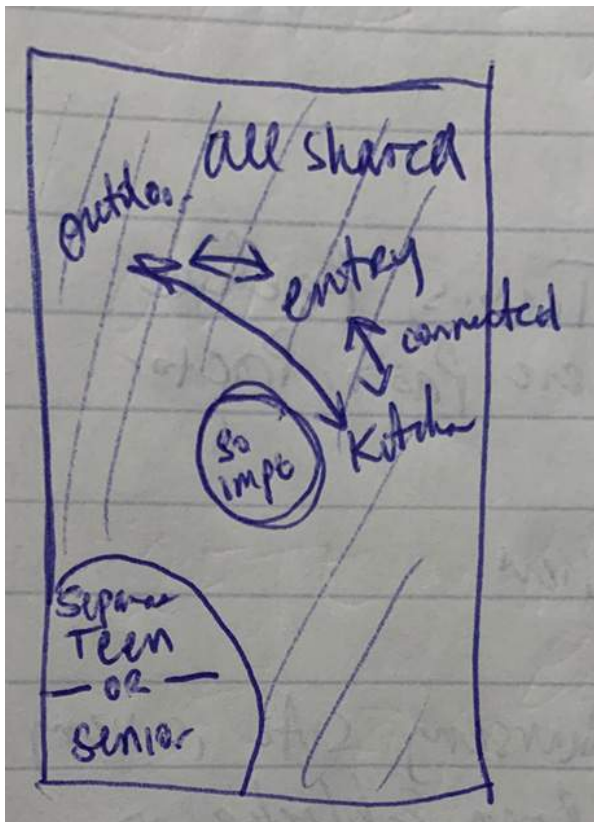 all shared
outdoo.
entry
connected
Kitchn
so
impt
Separate
Teen
- OR -
senior